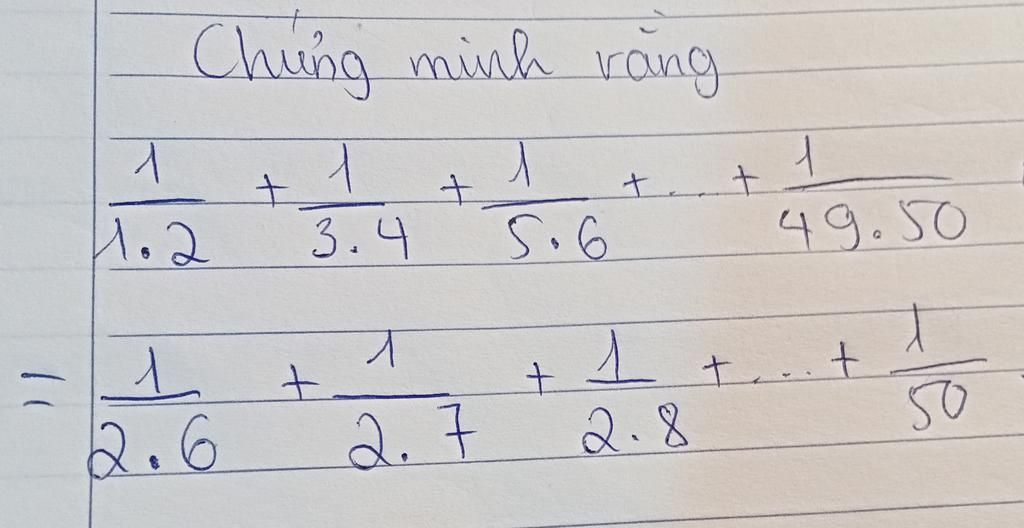 Chứng minh rằng
1/1.2 + 1/3.4 + 1/5.6 + ... + 1/49.50
= 1/2.6 + 1/2.7 + 1/2.8 + ... + 1/50